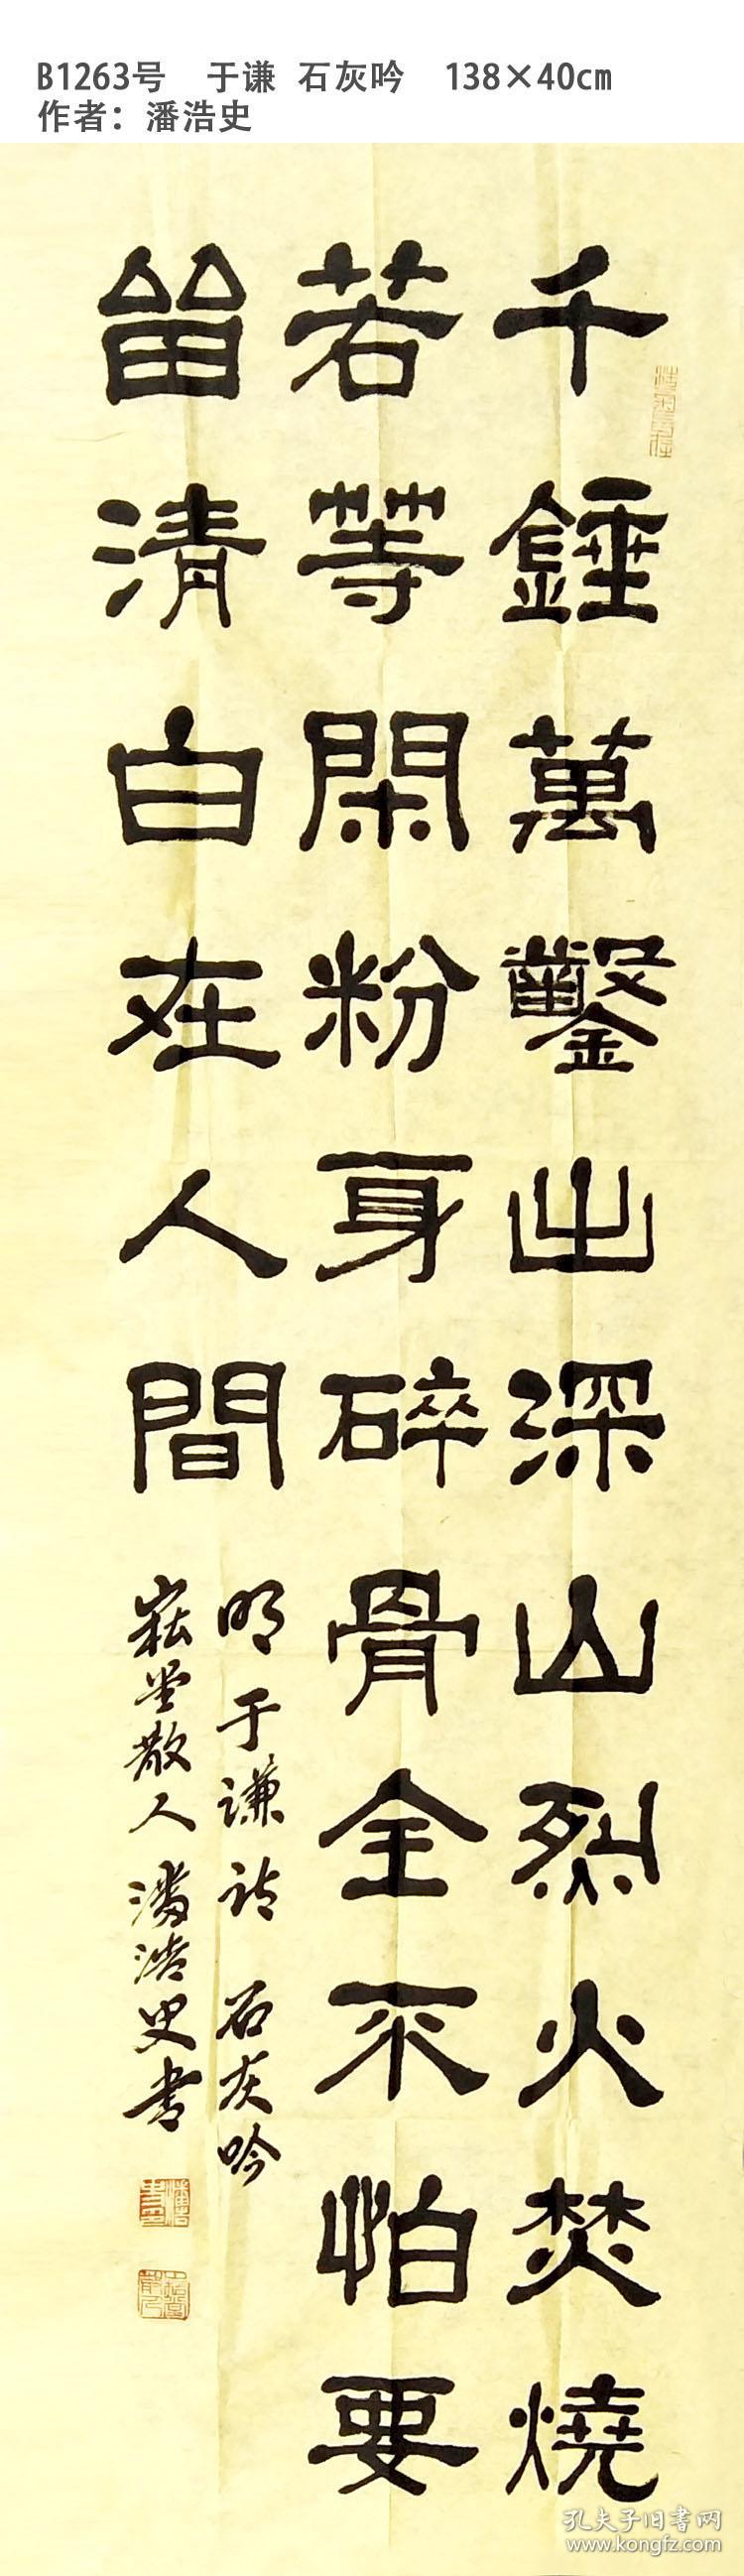 B1263号 于谦 石灰吟 138×40cm
作者：潘浩史
千錘萬鑿出深山烈火焚燒
若等閑粉身碎骨全不怕要
畱清白在人間
明于谦诗 石灰吟
散人潘浩史书
孔夫子旧书网
www.kongfz.com